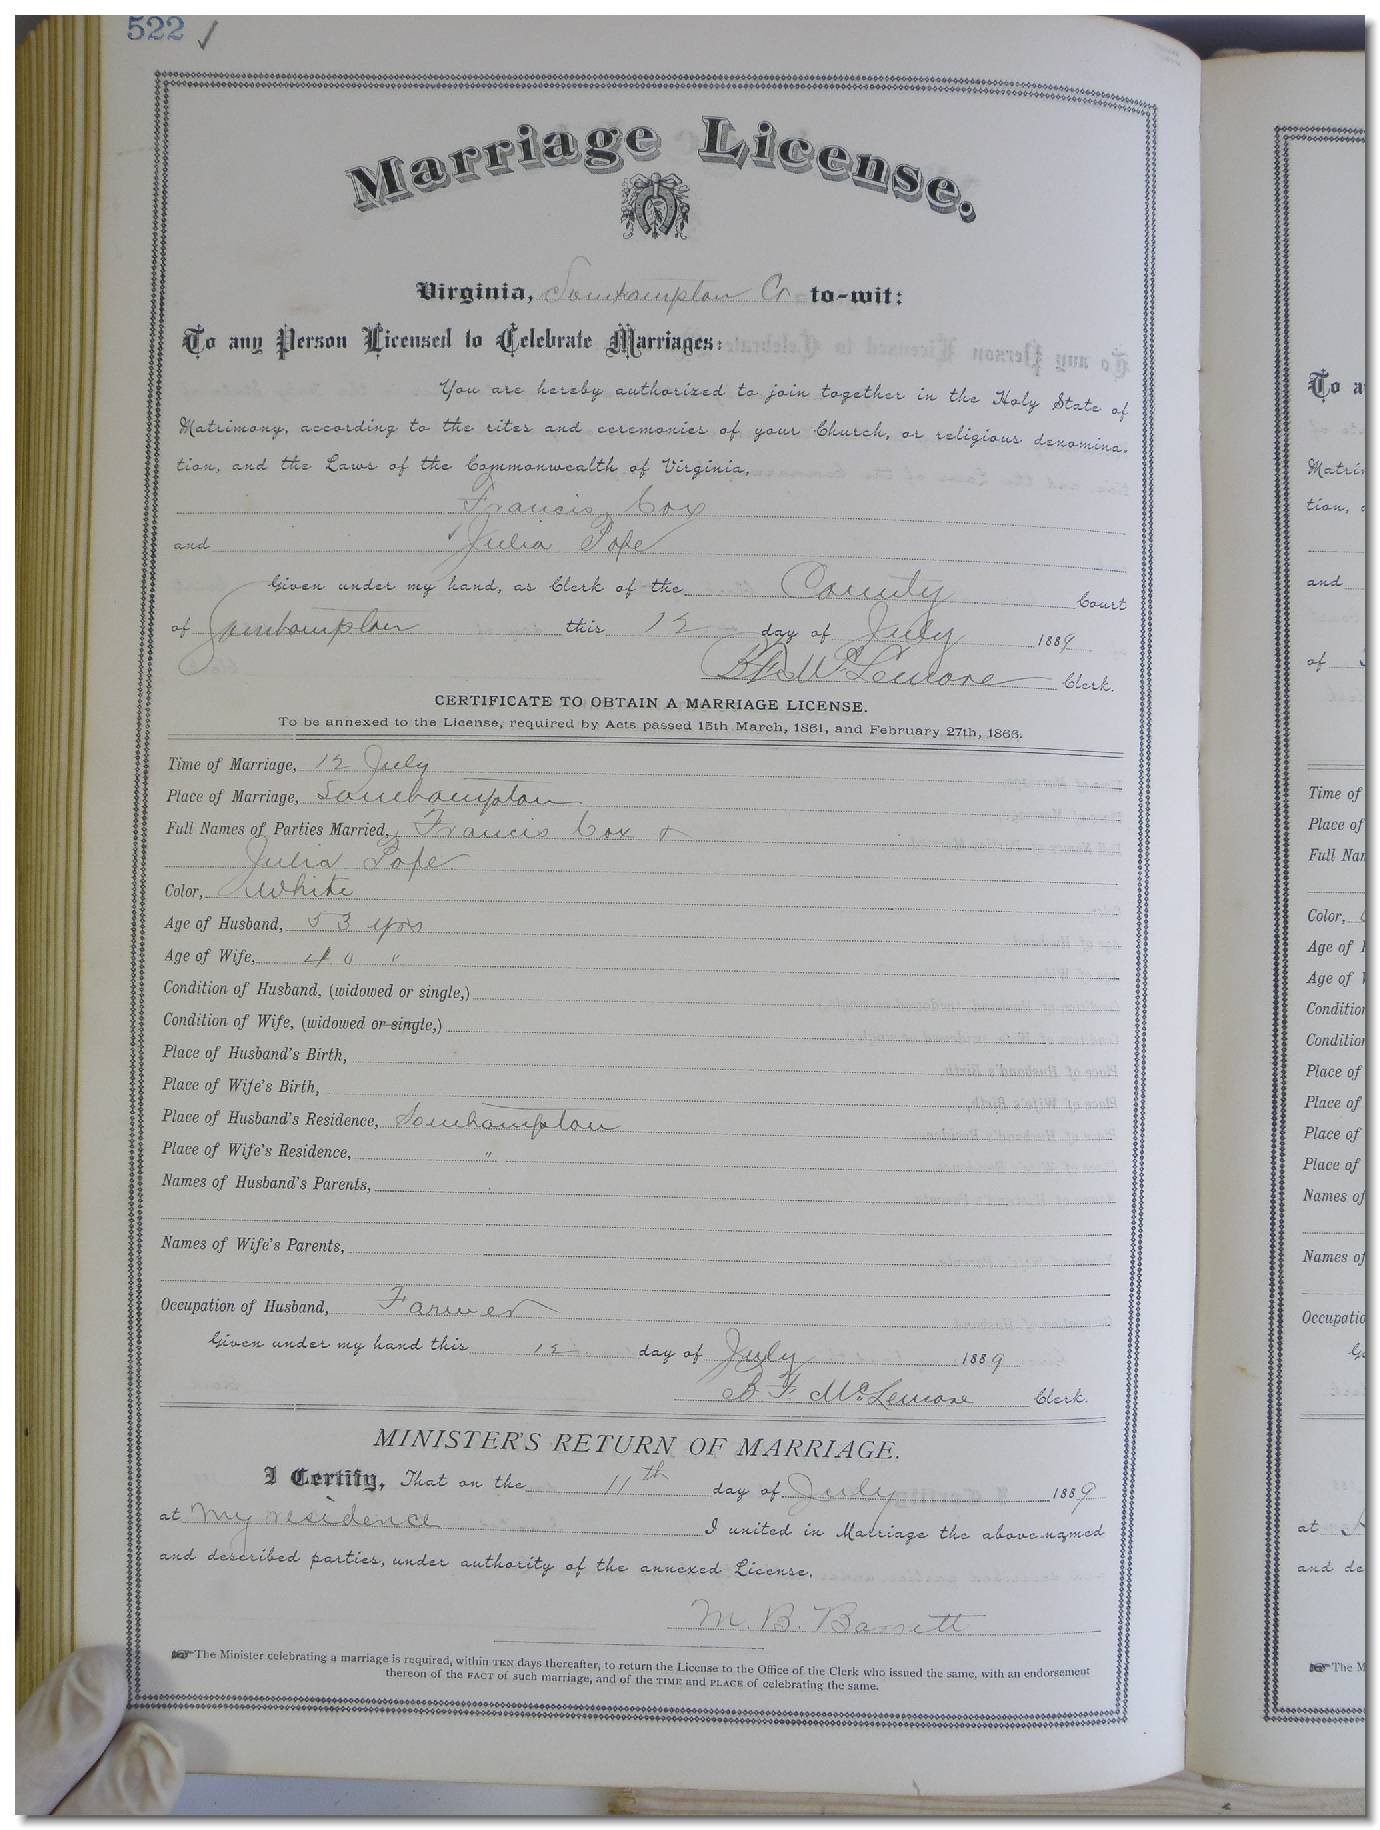 522 ✓
Marriage License.
Virginia, Southampton Co to-wit:
To any Person Licensed to Celebrate Marriages:
You are hereby authorized to join together in the Holy State of
Matrimony, according to the rites and ceremonies of your Church, or religious denomina-
tion, and the Laws of the Commonwealth of Virginia,
Francis Cox
and Julia Pope
Given under my hand, as Clerk of the County Court
of Southampton this 12 day of July 1889
B F McLemore Clerk.
CERTIFICATE TO OBTAIN A MARRIAGE LICENSE.
To be annexed to the License, required by Acts passed 15th March, 1861, and February 27th, 1866.
Time of Marriage, 12 July
Place of Marriage, Southampton
Full Names of Parties Married, Francis Cox &
Julia Pope
Color, White
Age of Husband, 53 yrs
Age of Wife, 40 "
Condition of Husband, (widowed or single,)
Condition of Wife, (widowed or single,)
Place of Husband's Birth,
Place of Wife's Birth,
Place of Husband's Residence, Southampton
Place of Wife's Residence, "
Names of Husband's Parents,
Names of Wife's Parents,
Occupation of Husband, Farmer
Given under my hand this 12 day of July 1889
B. F. McLemore Clerk.
MINISTER'S RETURN OF MARRIAGE.
I Certify, That on the 11th day of July 1889
at My residence I united in Marriage the above-named
and described parties, under authority of the annexed License.
M. B. Barrett
The Minister celebrating a marriage is required, within TEN days thereafter, to return the License to the Office of the Clerk who issued the same, with an endorsement
thereof of the FACT of such marriage, and of the TIME and PLACE of celebrating the same.
To a
Matri
tion,
and
of
Time of
Place of
Full Na
Color,
Age of
Age of
Condition
Condition
Place of
Place of
Place of
Place of
Names of
Names of
Occupatio
at
and de
The M